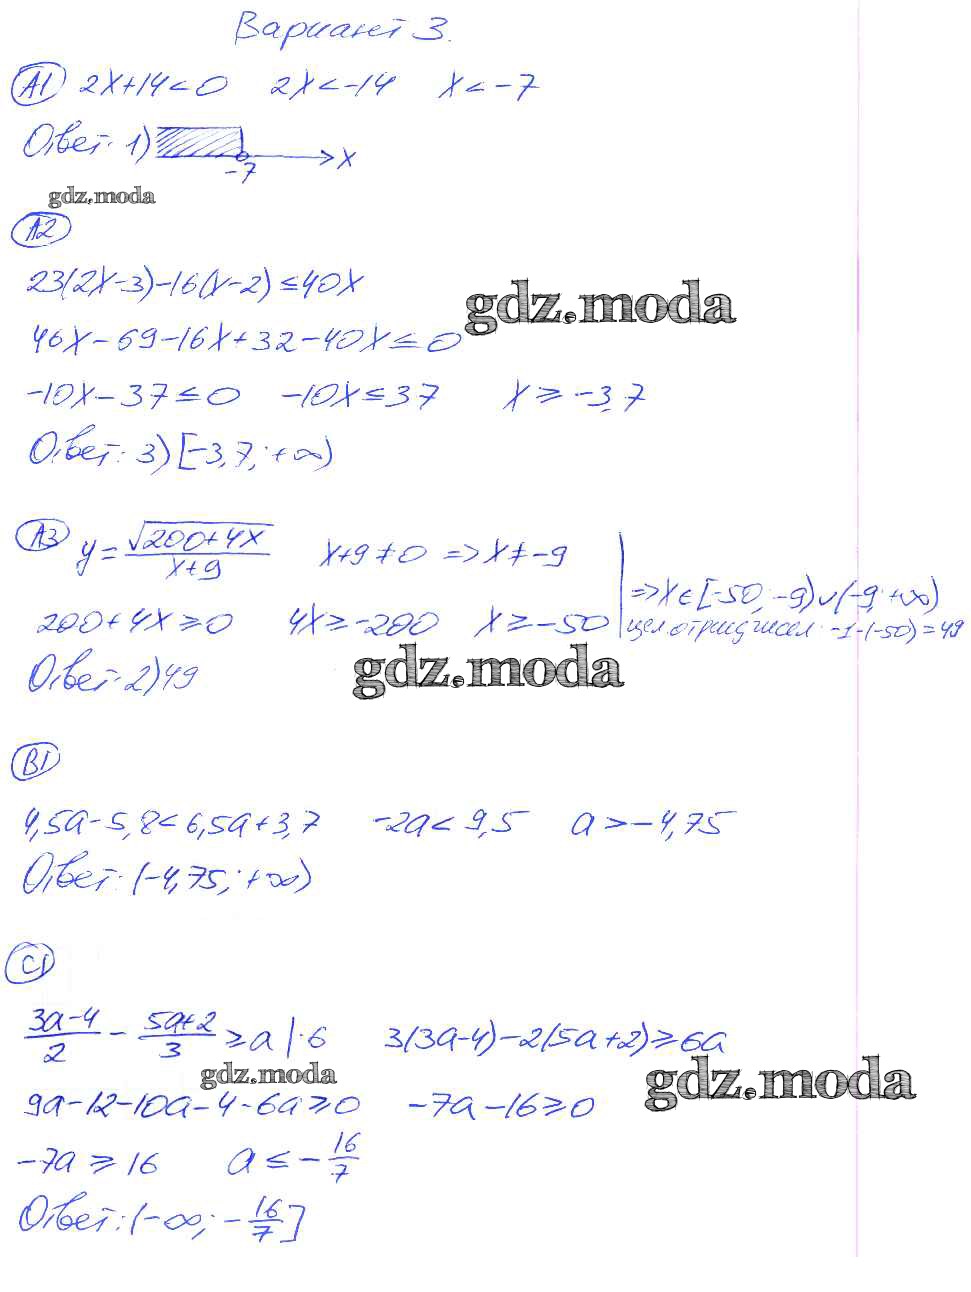 Вариант 3.
А1 2x+14<0 2x<-14 x<-7
Ответ: 1) -7 x
gdz.moda
А2
23(2x-3)-16(x-2)≤40x
gdz.moda
46x-69-16x+32-40x≤0
-10x-37≤0 -10x≤37 x≥-3,7
Ответ: 3) [-3,7; +∞)
А3 y=√(200+4x)/(x+9) x+9≠0 =>x≠-9
=>x∈[-50; -9)∪(-9; +∞)
200+4x≥0 4x≥-200 x≥-50
цел отриц чисел: -1-(-50)=49
Ответ: 2) 49
gdz.moda
В1
4,5a-5,8<6,5a+3,7 -2a<9,5 a>-4,75
Ответ: (-4,75; +∞)
С1
(3a-4)/2 - (5a+2)/3 ≥a |·6 3(3a-4)-2(5a+2)≥6a
gdz.moda
gdz.moda
9a-12-10a-4-6a≥0 -7a-16≥0
-7a≥16 a≤-16/7
Ответ: (-∞; -16/7]